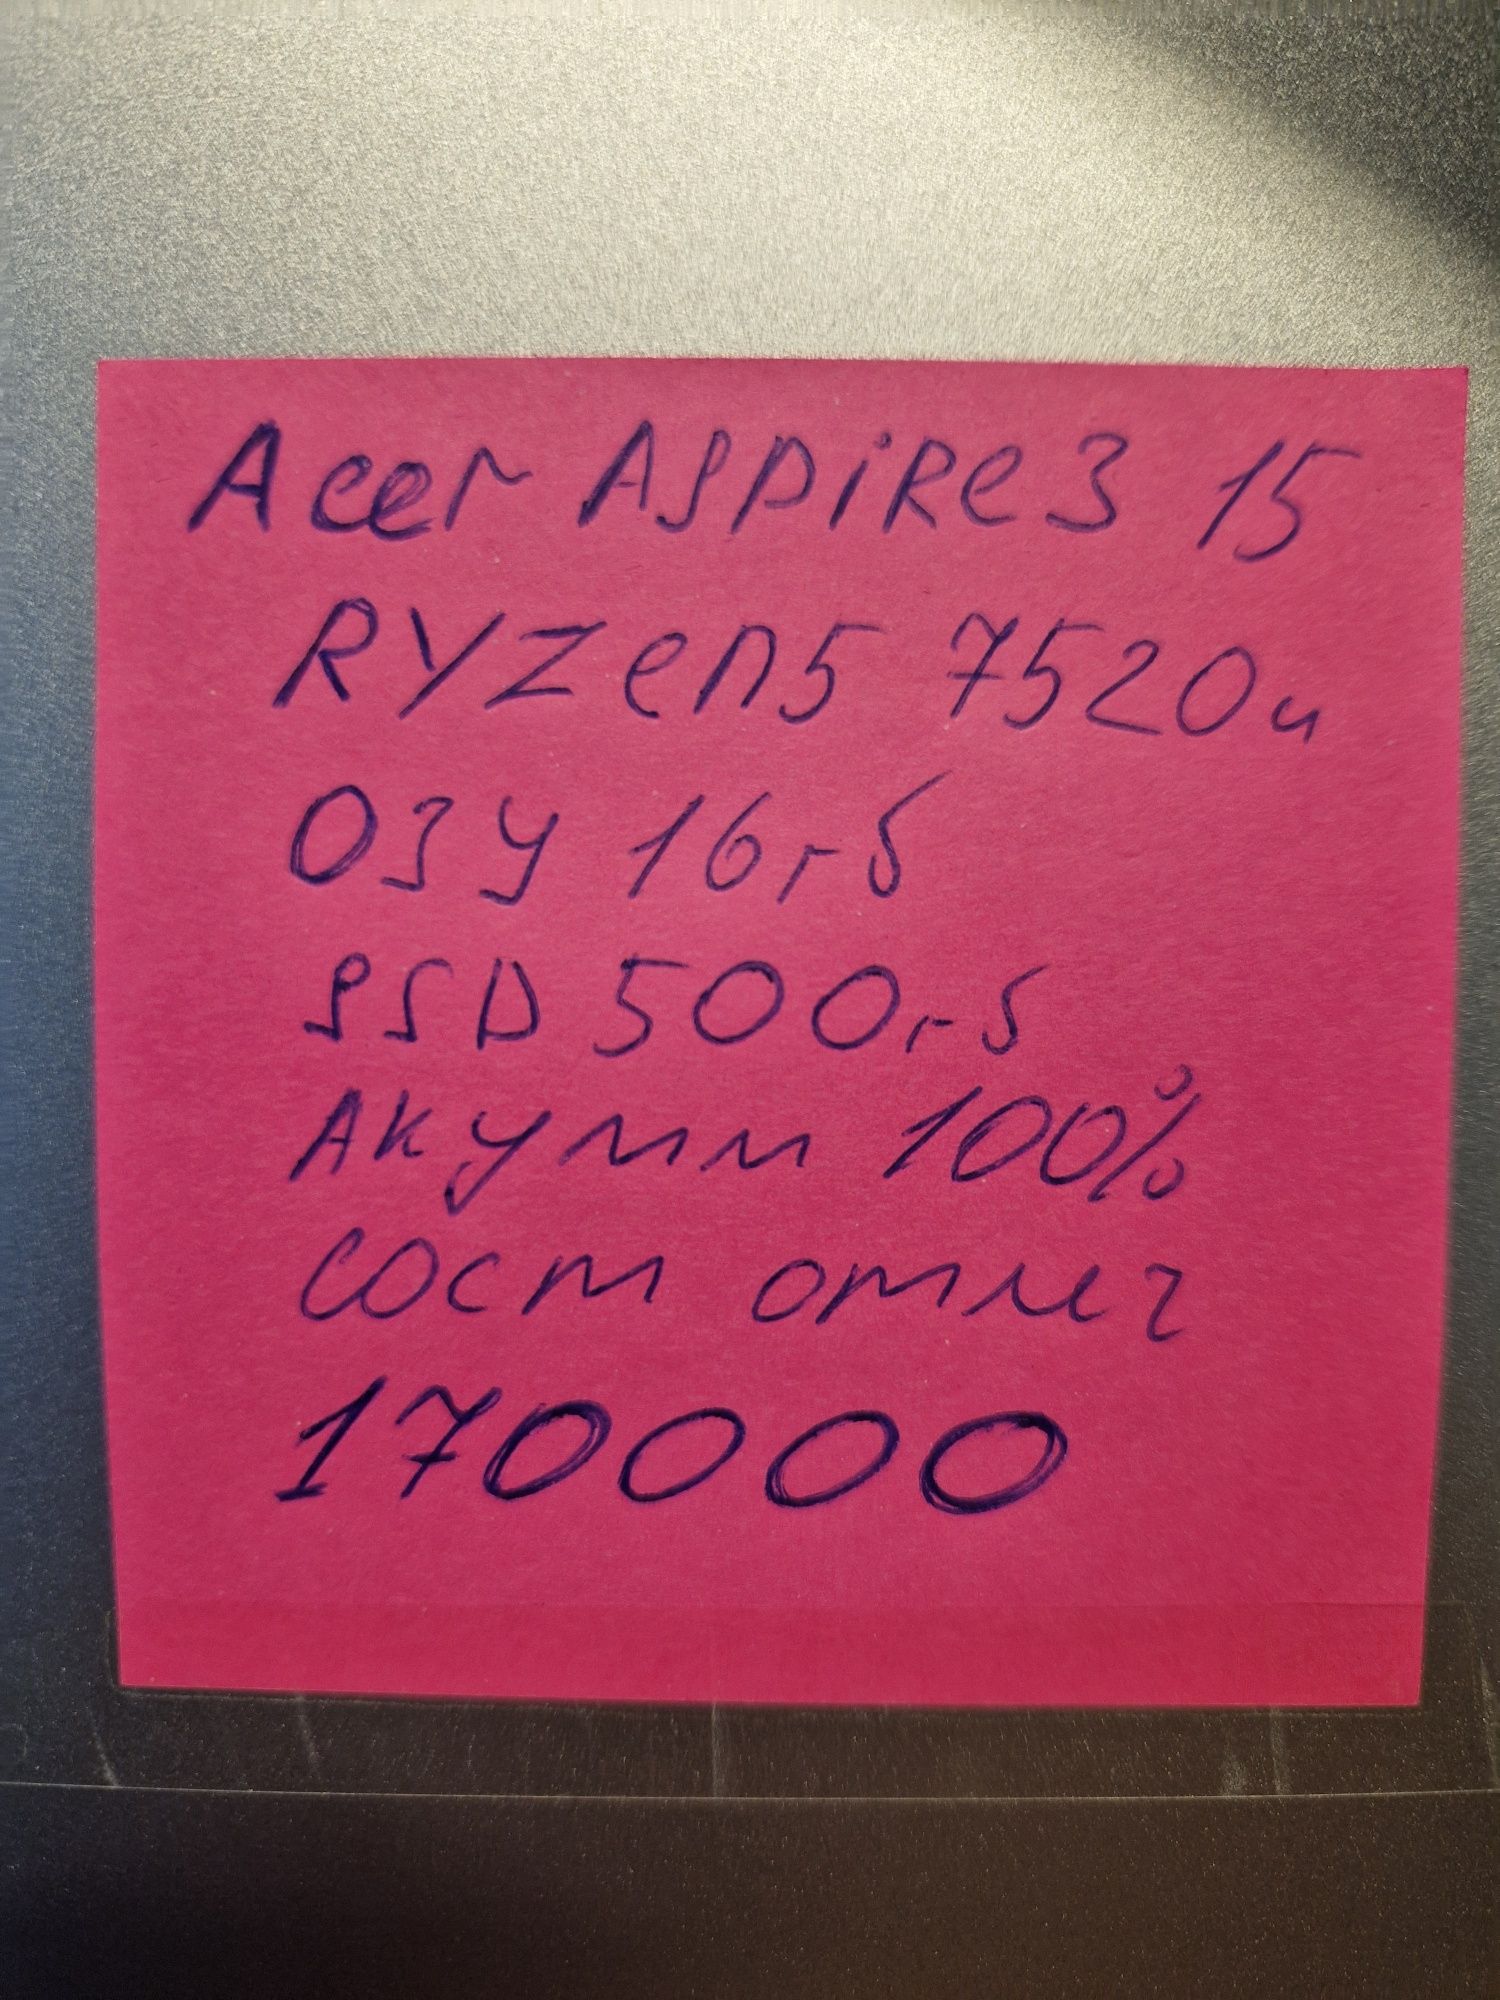 Acer Aspire 3 15
Ryzen 5 7520u
ОЗУ 16гб
SSD 500гб
Акумм 100%
сост отлич
170000